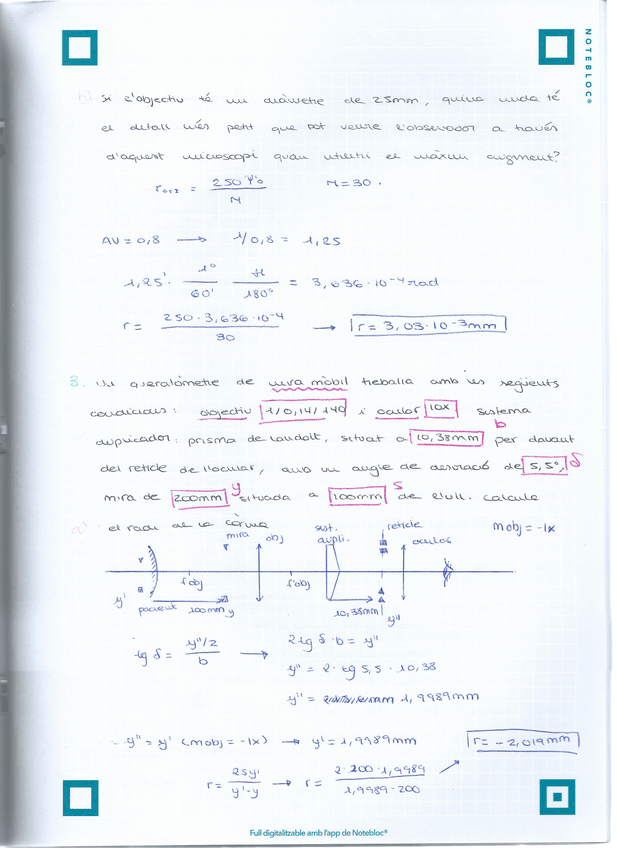 NOTEBLOC®
b) Si l'objectiu té un diàmetre de 25mm, quina mida té
el detall més petit que pot veure l'observador a través
d'aquest microscopi quan utilitzi el màxim augment?
r = 250 φ'o / M    M = 30.
AV = 0,8 → 1/0,8 = 1,25
1,25' · 1º/60' π/180º = 3,636·10⁻⁴ rad
r = 250·3,636·10⁻⁴ / 30 → r = 3,03·10⁻³mm
3. Un queratòmetre de mira mòbil treballa amb les següents
condicions: objectiu 1/0,14/140 i ocular 10x sistema
b
duplicador: prisma de Landolt, situat a 10,38mm per davant
del reticle de l'ocular, amb un angle de desviació de 5,5º, δ
mira de 200mm y situada a 100mm s de l'ull. Calcula
a) el radi de la còrnia
mobj = -1x
mira obj sist. dupli. reticle ocular
y' f'obj f'obj
pacient 100mm y 10,38mm y''
tg δ = y''/2 / b → 2 tg δ · b = y''
y'' = 2 · tg 5,5 · 10,38
y'' = 1,9989mm
y'' = y' (mobj = -1x) → y' = 1,9989mm
r = 2sy' / y'-y → r = 2·200·1,9989 / 1,9989-200
r = -2,019mm
Full digitalitzable amb l'app de Notebloc®